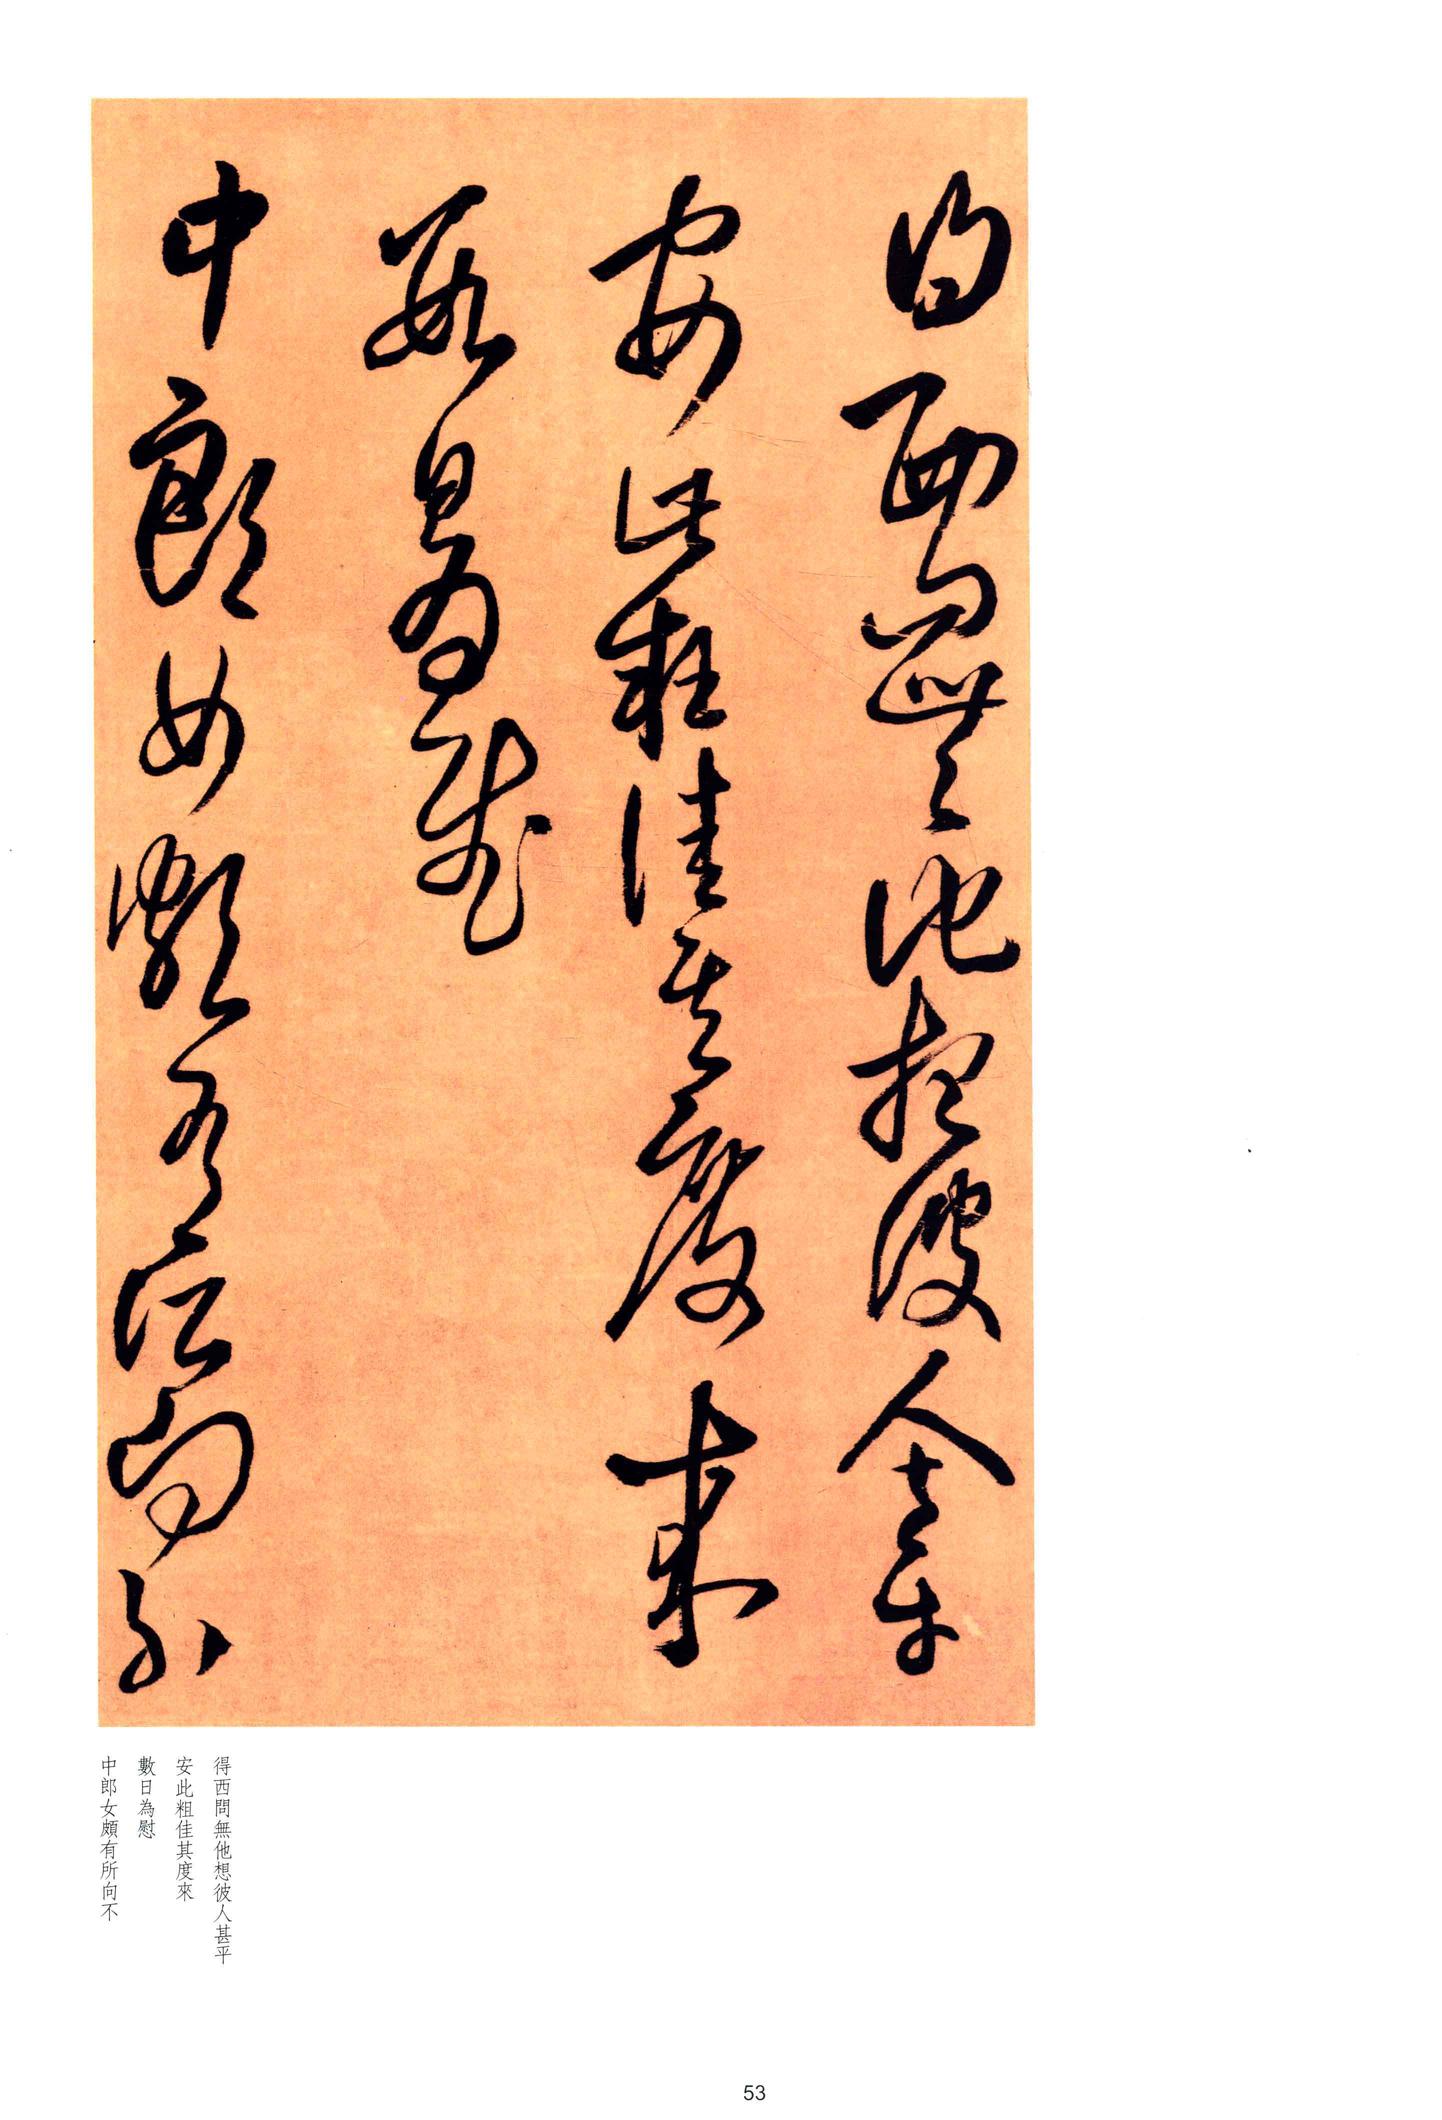 得西問無他想彼人甚平
安此粗佳其度來
數日為慰
中郎女頗有所向不
得西問無他想彼人甚平
安此粗佳其度來
數日為慰
中郎女頗有所向不
53